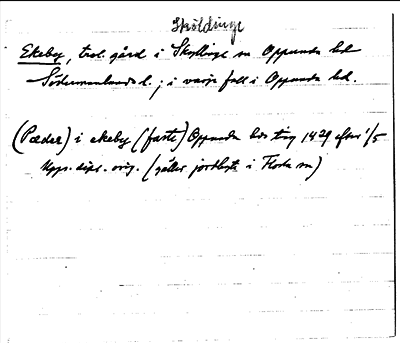 Sköldinge
Ekeby, trol. gård i Skyllinge sn Oppunda hd
Södermanlands l.; i varje fall i Oppunda hd.
(Pæder) i ekeby (faste) Oppunda hds ting 1429 efter 1/5
Upps. dipl. orig. (gäller jordbyte i Floda sn)